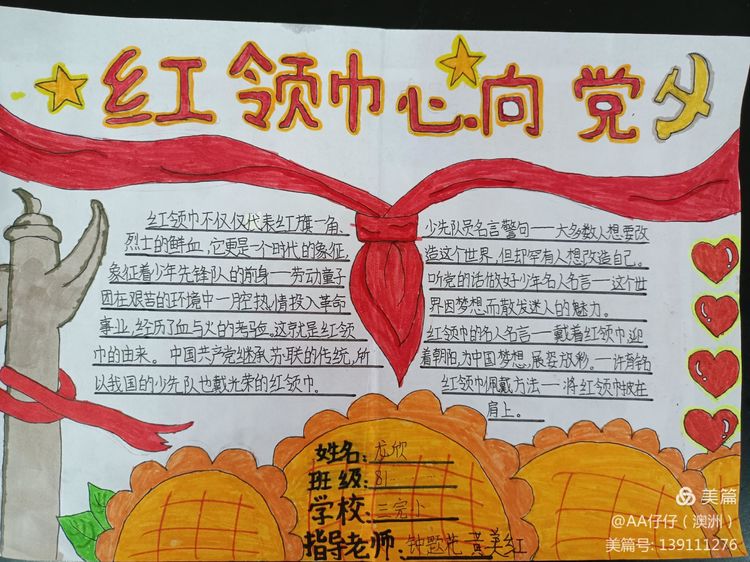 红领巾心向党
红领巾不仅仅代表红旗一角、
烈士的鲜血,它更是一个时代的象征,
象征着少年先锋队的前身——劳动童子
团在艰苦的环境中一腔热情投入革命
事业,经历了血与火的考验。这就是红领
巾的由来。中国共产党继承苏联的传统,所
以我国的少先队也戴光荣的红领巾。
少先队员名言警句——大多数人想要改
造这个世界,但却罕有人想改造自己。
听党的话做好少年名人名言——这个世
界因梦想,而散发迷人的魅力。
红领巾的名人名言——戴着红领巾,迎
着朝阳,为中国梦想,展姿放彩。——许有铭
红领巾佩戴方法——将红领巾披在
肩上。
姓名:龙欣
班级:81
学校:三完小
指导老师:钟题花 黄美红
美篇
@AA仔仔(澳洲)
美篇号:139111276